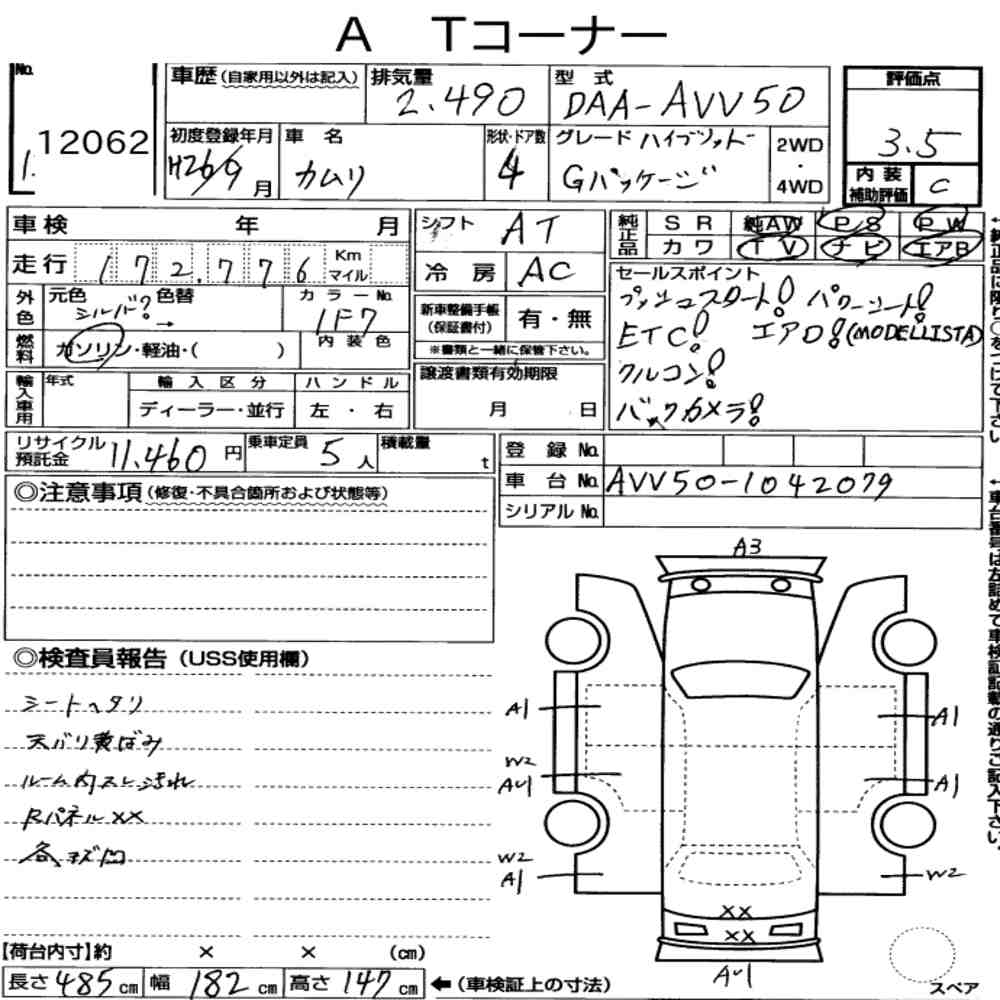 A Tコーナー
No. 1. 12062
車歴(自家用以外は記入) 排気量 2.490 型式 DAA-AVV50 評価点 3.5
初度登録年月 H26/9月 車名 カムリ 形状・ドア数 4 グレード ハイブリッド Gパッケージ 2WD ・ 4WD 内装補助評価 C
車検 年 月 シフト AT 純正品 SR 純AW PS PW
走行 172.776 Km マイル 冷房 AC カワ TV ナビ エアB
外色 元色 シルバー? 色替 → カラーNo. 1F7 新車整備手帳(保証書付) 有・無
セールスポイント
プッシュスタート! パワーシート!
ETC! エアロ!(MODELLISTA)
クルコン!
バックカメラ!
燃料 ガソリン・軽油・( ) 内装色 ※書類と一緒に保管下さい。
輸入車用 年式 輸入区分 ハンドル 譲渡書類有効期限
ディーラー・並行 左・右 月 日
リサイクル預託金 11.460円 乗車定員 5人 積載量 t 登録No.
車台No. AVV50-1042079
シリアルNo.
◎注意事項(修復・不具合箇所および状態等)
◎検査員報告(USS使用欄)
シートヘタリ
天バリ黄ばみ
ルーム内スレ汚れ
RパネルXX
各、キズ凹
A3
A1 A1
W2
AU1 A1
W2
A1 W2
XX
XX
AU1
スペア
【荷台内寸】約 × × (cm)
長さ485cm 幅182cm 高さ147cm ←(車検証上の寸法)
←純正品に限り○をつけて下さい。
←車台番号は左詰めで車検証記載の通りご記入下さい。